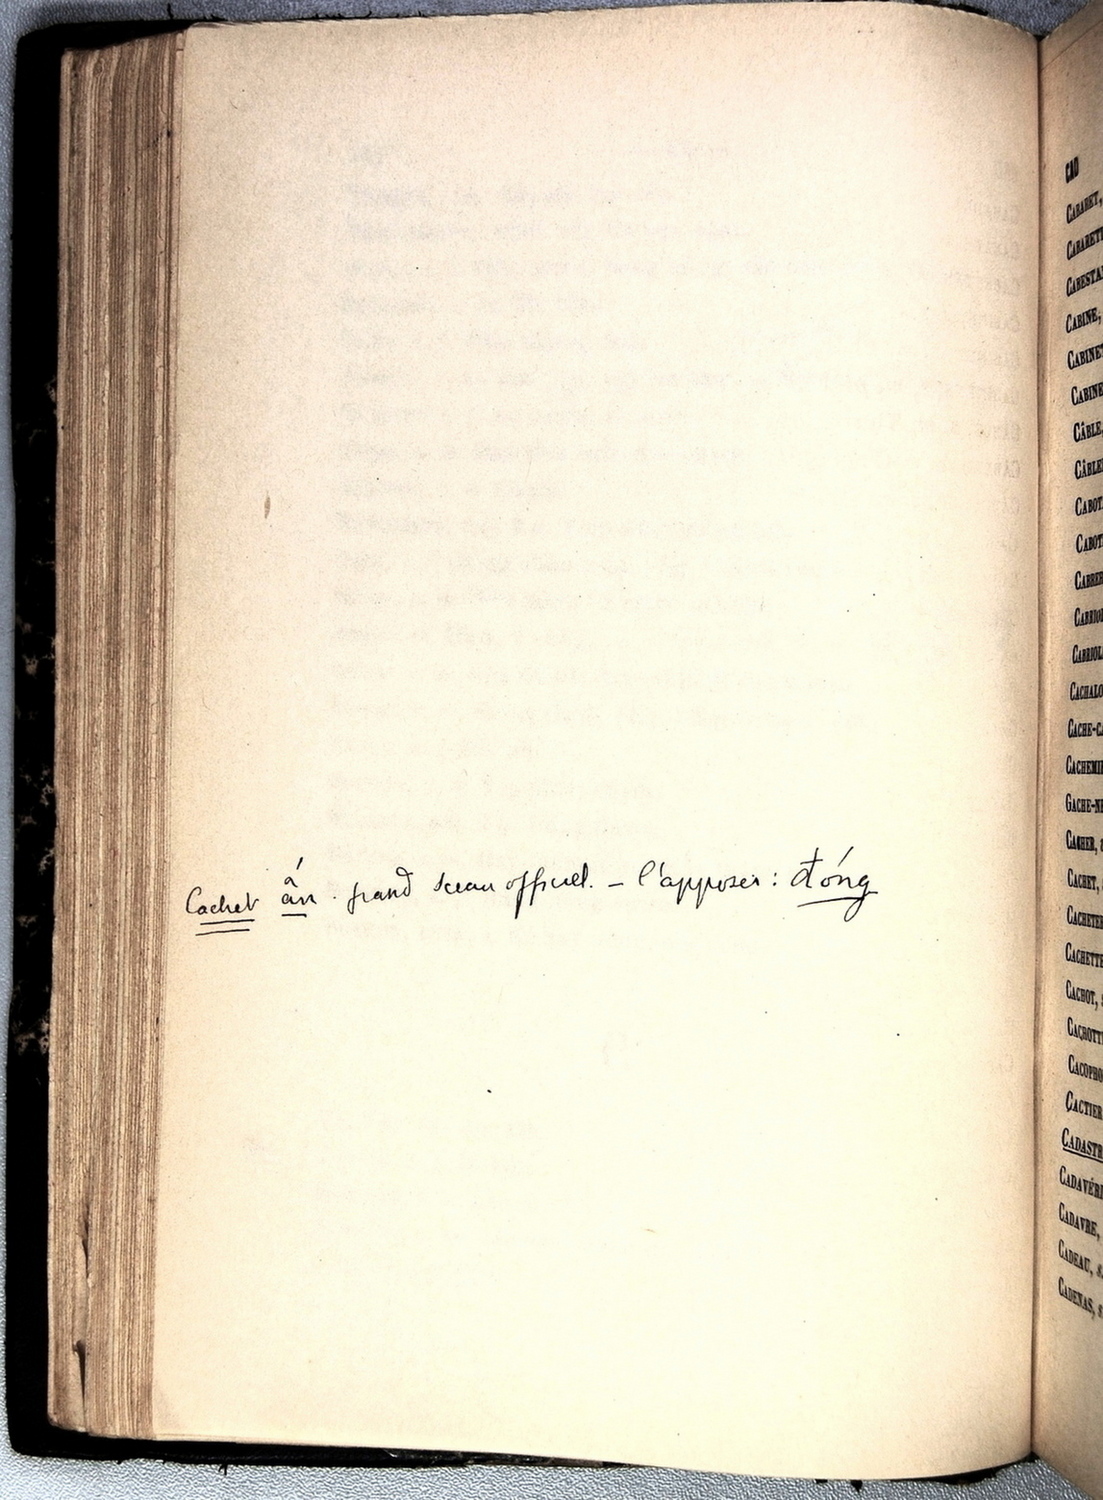 Cachet ấn. grand sceau officiel. – l'apposer : đóng
CAD
CABARET,
CABARETI
CABESTA
CABINE,
CABINET
CABINE
CÂBLE,
CÂBLE
CABOT
CABOT
CABRIO
CABRIOL
CACHALO
CACHE-C
CACHEMI
CACHE-NE
CACHER,
CACHET,
CACHETER
CACHETTE
CACHOT,
CACHOTT
CACOPHO
CACTIER
CADASTR
CADAVÉR
CADAVRE,
CADEAU, s
CADENAS, s